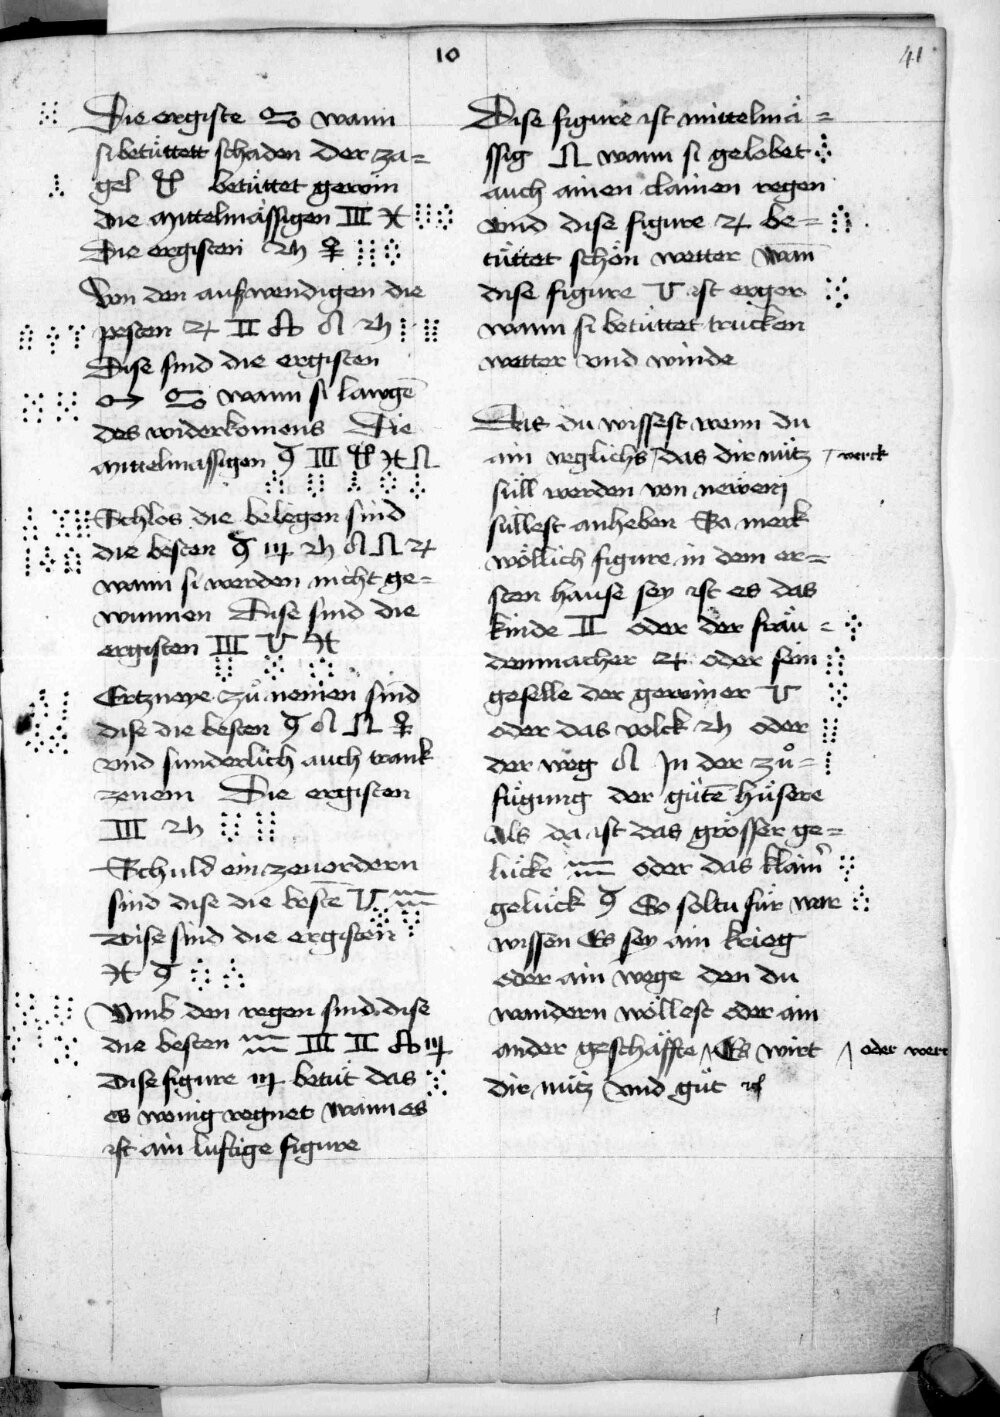 10
41
Die ergiste wann
si betüttett schaden Der za=
gel betüttet gewin
die mittelmässigen III
Die ergisten ♀
Von den aufwendigen die
pesten ♃ II ♌
Dise sind die ergisten
wann si
des widerkomens Die
mittelmassigen III
Schlos die belegen sind
die besten ♃
wann si werden nicht ge=
wunnen Dise sind die
ergisten III
Ertzneye zů nemen sind
dise die besten ♀
vnd sunderlich auch trank
zenem Die ergisten
III
Schuld ein zeuordern
sind dise die bestē
Dise sind die ergisten
Vmb den regen sind dise
die besten III II
Dise figure betüt das
es wenig regnet wann es
ist ain luftige figure
Dise figure ist mittelmä=
ssig wann si gelobet
auch ainen clainen regen
vnd dise figure ♃ be=
tüttet schön wetter wān
dise figure ist erger
wann si betüttet trucken
wetter vnd winde
Das du wissest wenn du
ain yeglichs das dir nütz
werck
süll werden von newem
süllest anheben So merck
wöllich figure in dem er=
sten hause sey ist es das
kinde II oder der fräu=
denmacher ♃ oder sein
geselle der gewiner
oder das volck oder
der weg In der zů=
fügung der gütē hüsere
als da ist das grösser ge=
lücke oder das klain
gelück So soltu für war
wissen Es sey ain krieg
oder ain wege den du
wandern wöllest oder ain
ander geschäffte Es wirt
oder werc
dir nütz vnd güt